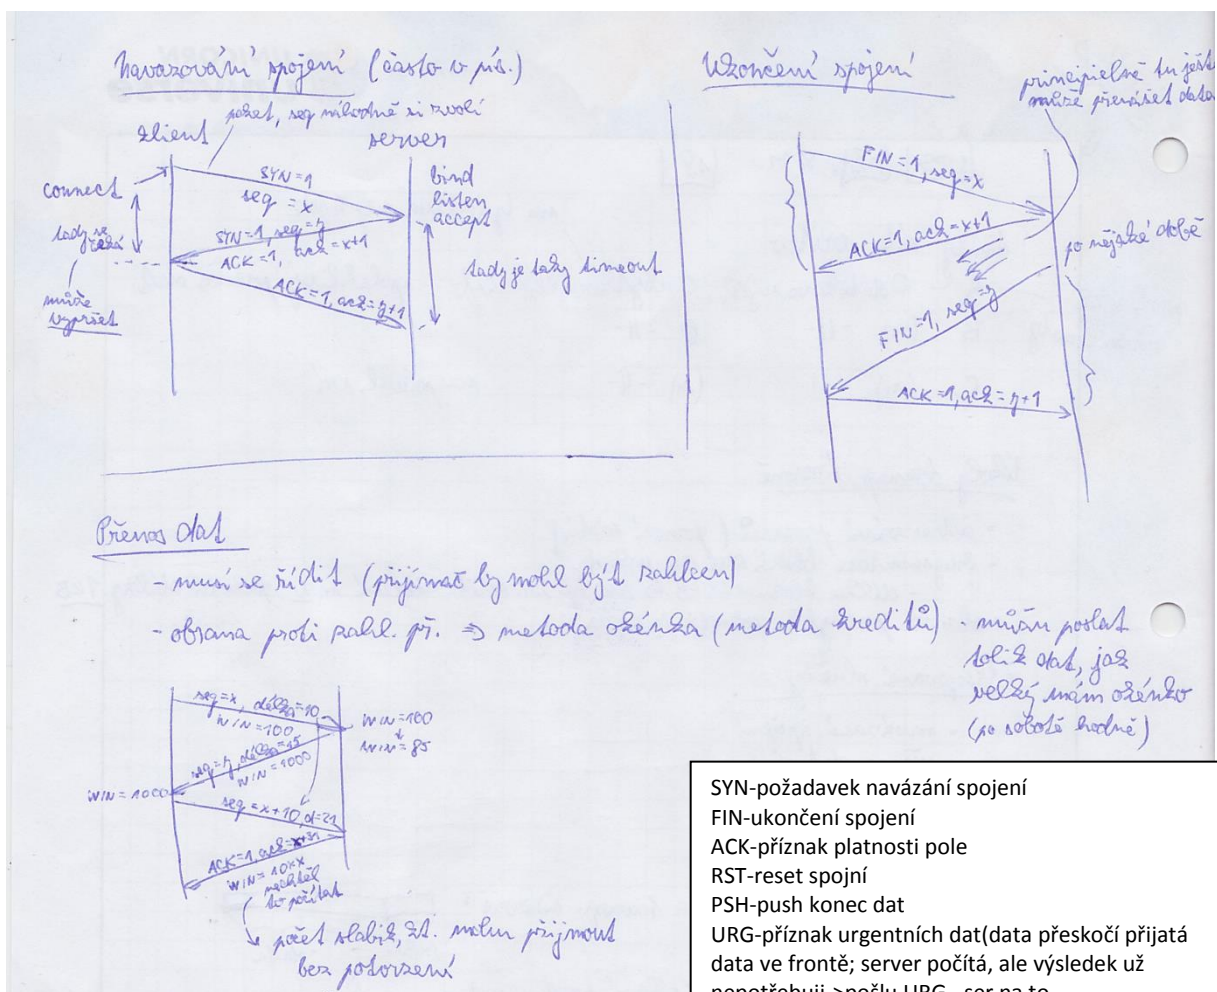 Navazování spojení (často v pís.)
počet, seq náhodně si zvolí
klient
server
connect
SYN=1
seq = x
bind
listen
accept
tady se
čeká
SYN=1, seq=y
ACK=1, ack=x+1
může
vypršet
tady je taky timeout
ACK=1, ack=y+1
Ukončení spojení
principielně tu ještě
může přenášet data
FIN=1, seq=x
ACK=1, ack=x+1
po nějaké době
FIN=1, seq=y
ACK=1, ack=y+1
Přenos dat
- musí se řídit (přijímač by mohl být zahlcen)
- obrana proti zahl. př. => metoda okénka (metoda kreditů) - můžu poslat
tolik dat, jak
velký mám okénko
(po sobotě hodně)
seq=x, délka=10
WIN=100
WIN=100
WIN=85
seq=y, délka=15
WIN=1000
WIN=1000
seq=x+10, d=21
ACK=1, ack=x+31
WIN=10xx
nechtěl
to počítat
počet slabik, kt. mohu přijmout
bez potvrzení
SYN-požadavek navázání spojení
FIN-ukončení spojení
ACK-příznak platnosti pole
RST-reset spojní
PSH-push konec dat
URG-příznak urgentních dat(data přeskočí přijatá
data ve frontě; server počítá, ale výsledek už
nepotřebuji->pošlu URG - ser na to